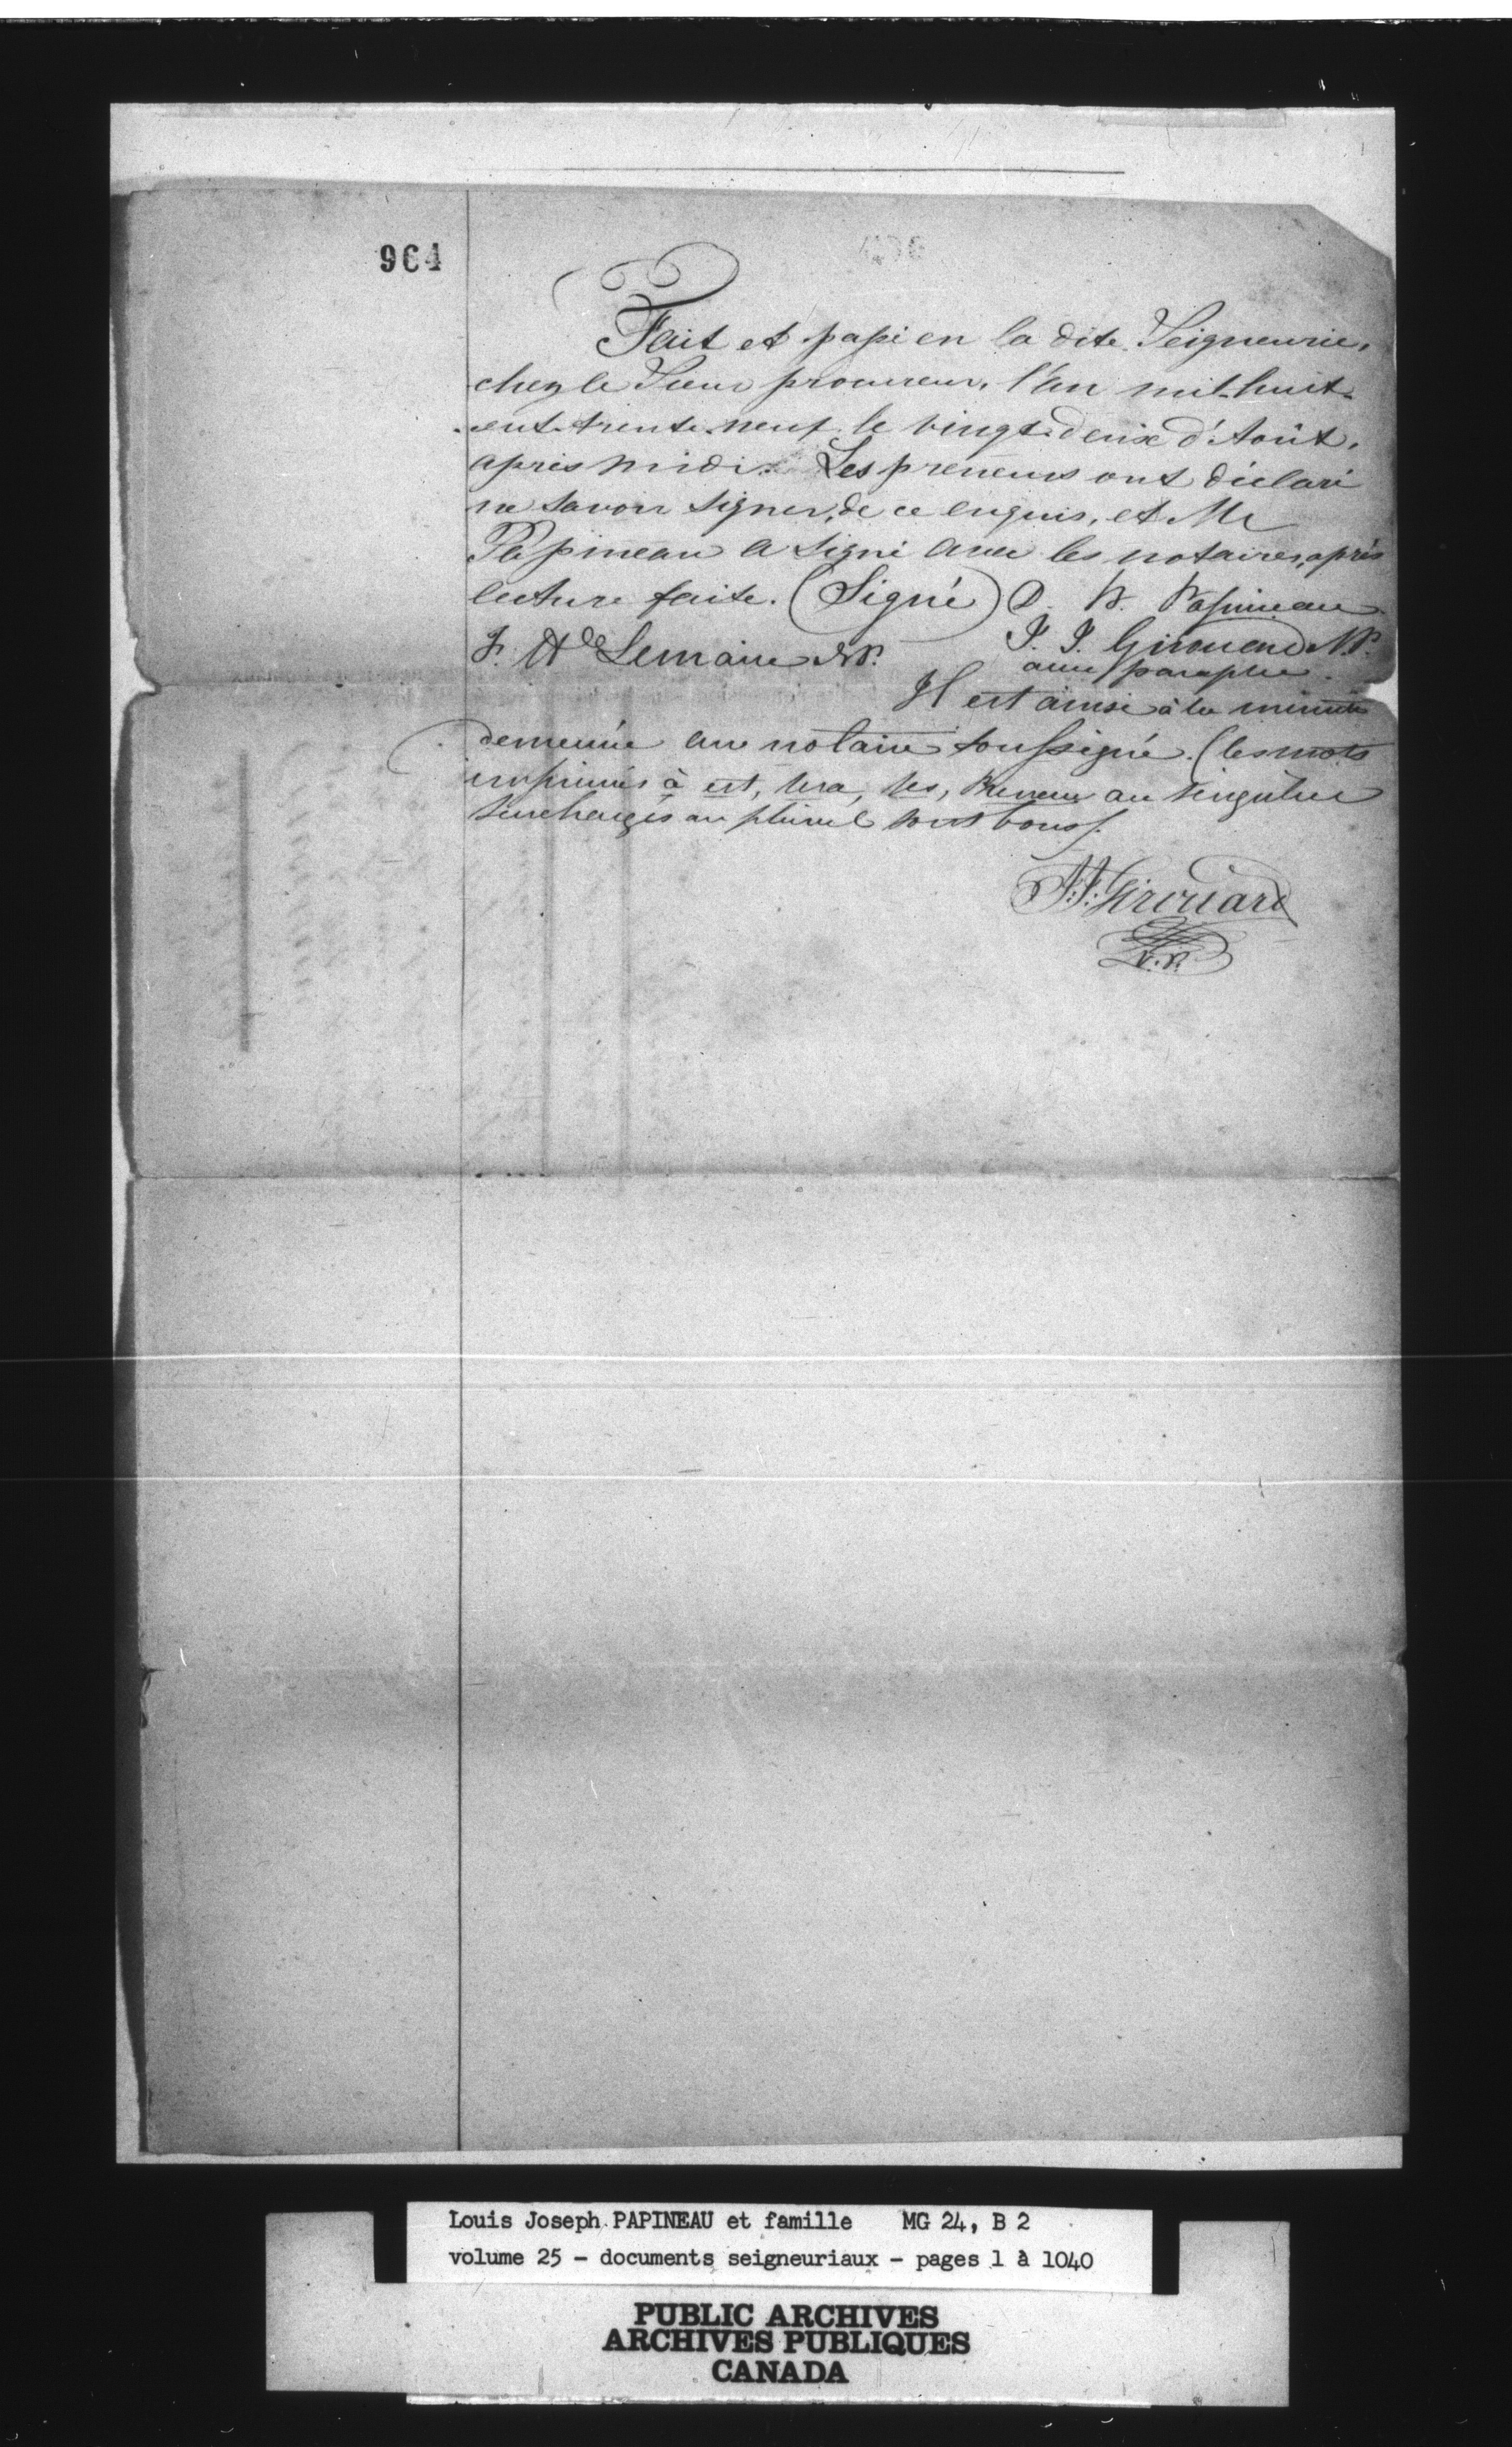 964
Fait et passé en la dite Seigneurie,
chez le Sieur procureur, l'an mil-huit-
cent-trente-neuf le vingt-deux d'Août,
après midi. Les preneurs ont déclaré
ne savoir signer, de ce enquis, et Mr
Papineau a signé avec les notaires, après
lecture faite. (Signé) D. B. Papineau
F. Hde Lemaire N.P. J. J. Girouard N.P.
avec paraphe.
Il est ainsi à la minute
demeurée au notaire soussigné. (les mots
imprimés à est, sera, ses, Preneur au singulier
surchargés au pluriel sont bons).
J. J. Girouard
N.P.
Louis Joseph PAPINEAU et famille MG 24, B 2
volume 25 - documents seigneuriaux - pages 1 à 1040
PUBLIC ARCHIVES
ARCHIVES PUBLIQUES
CANADA